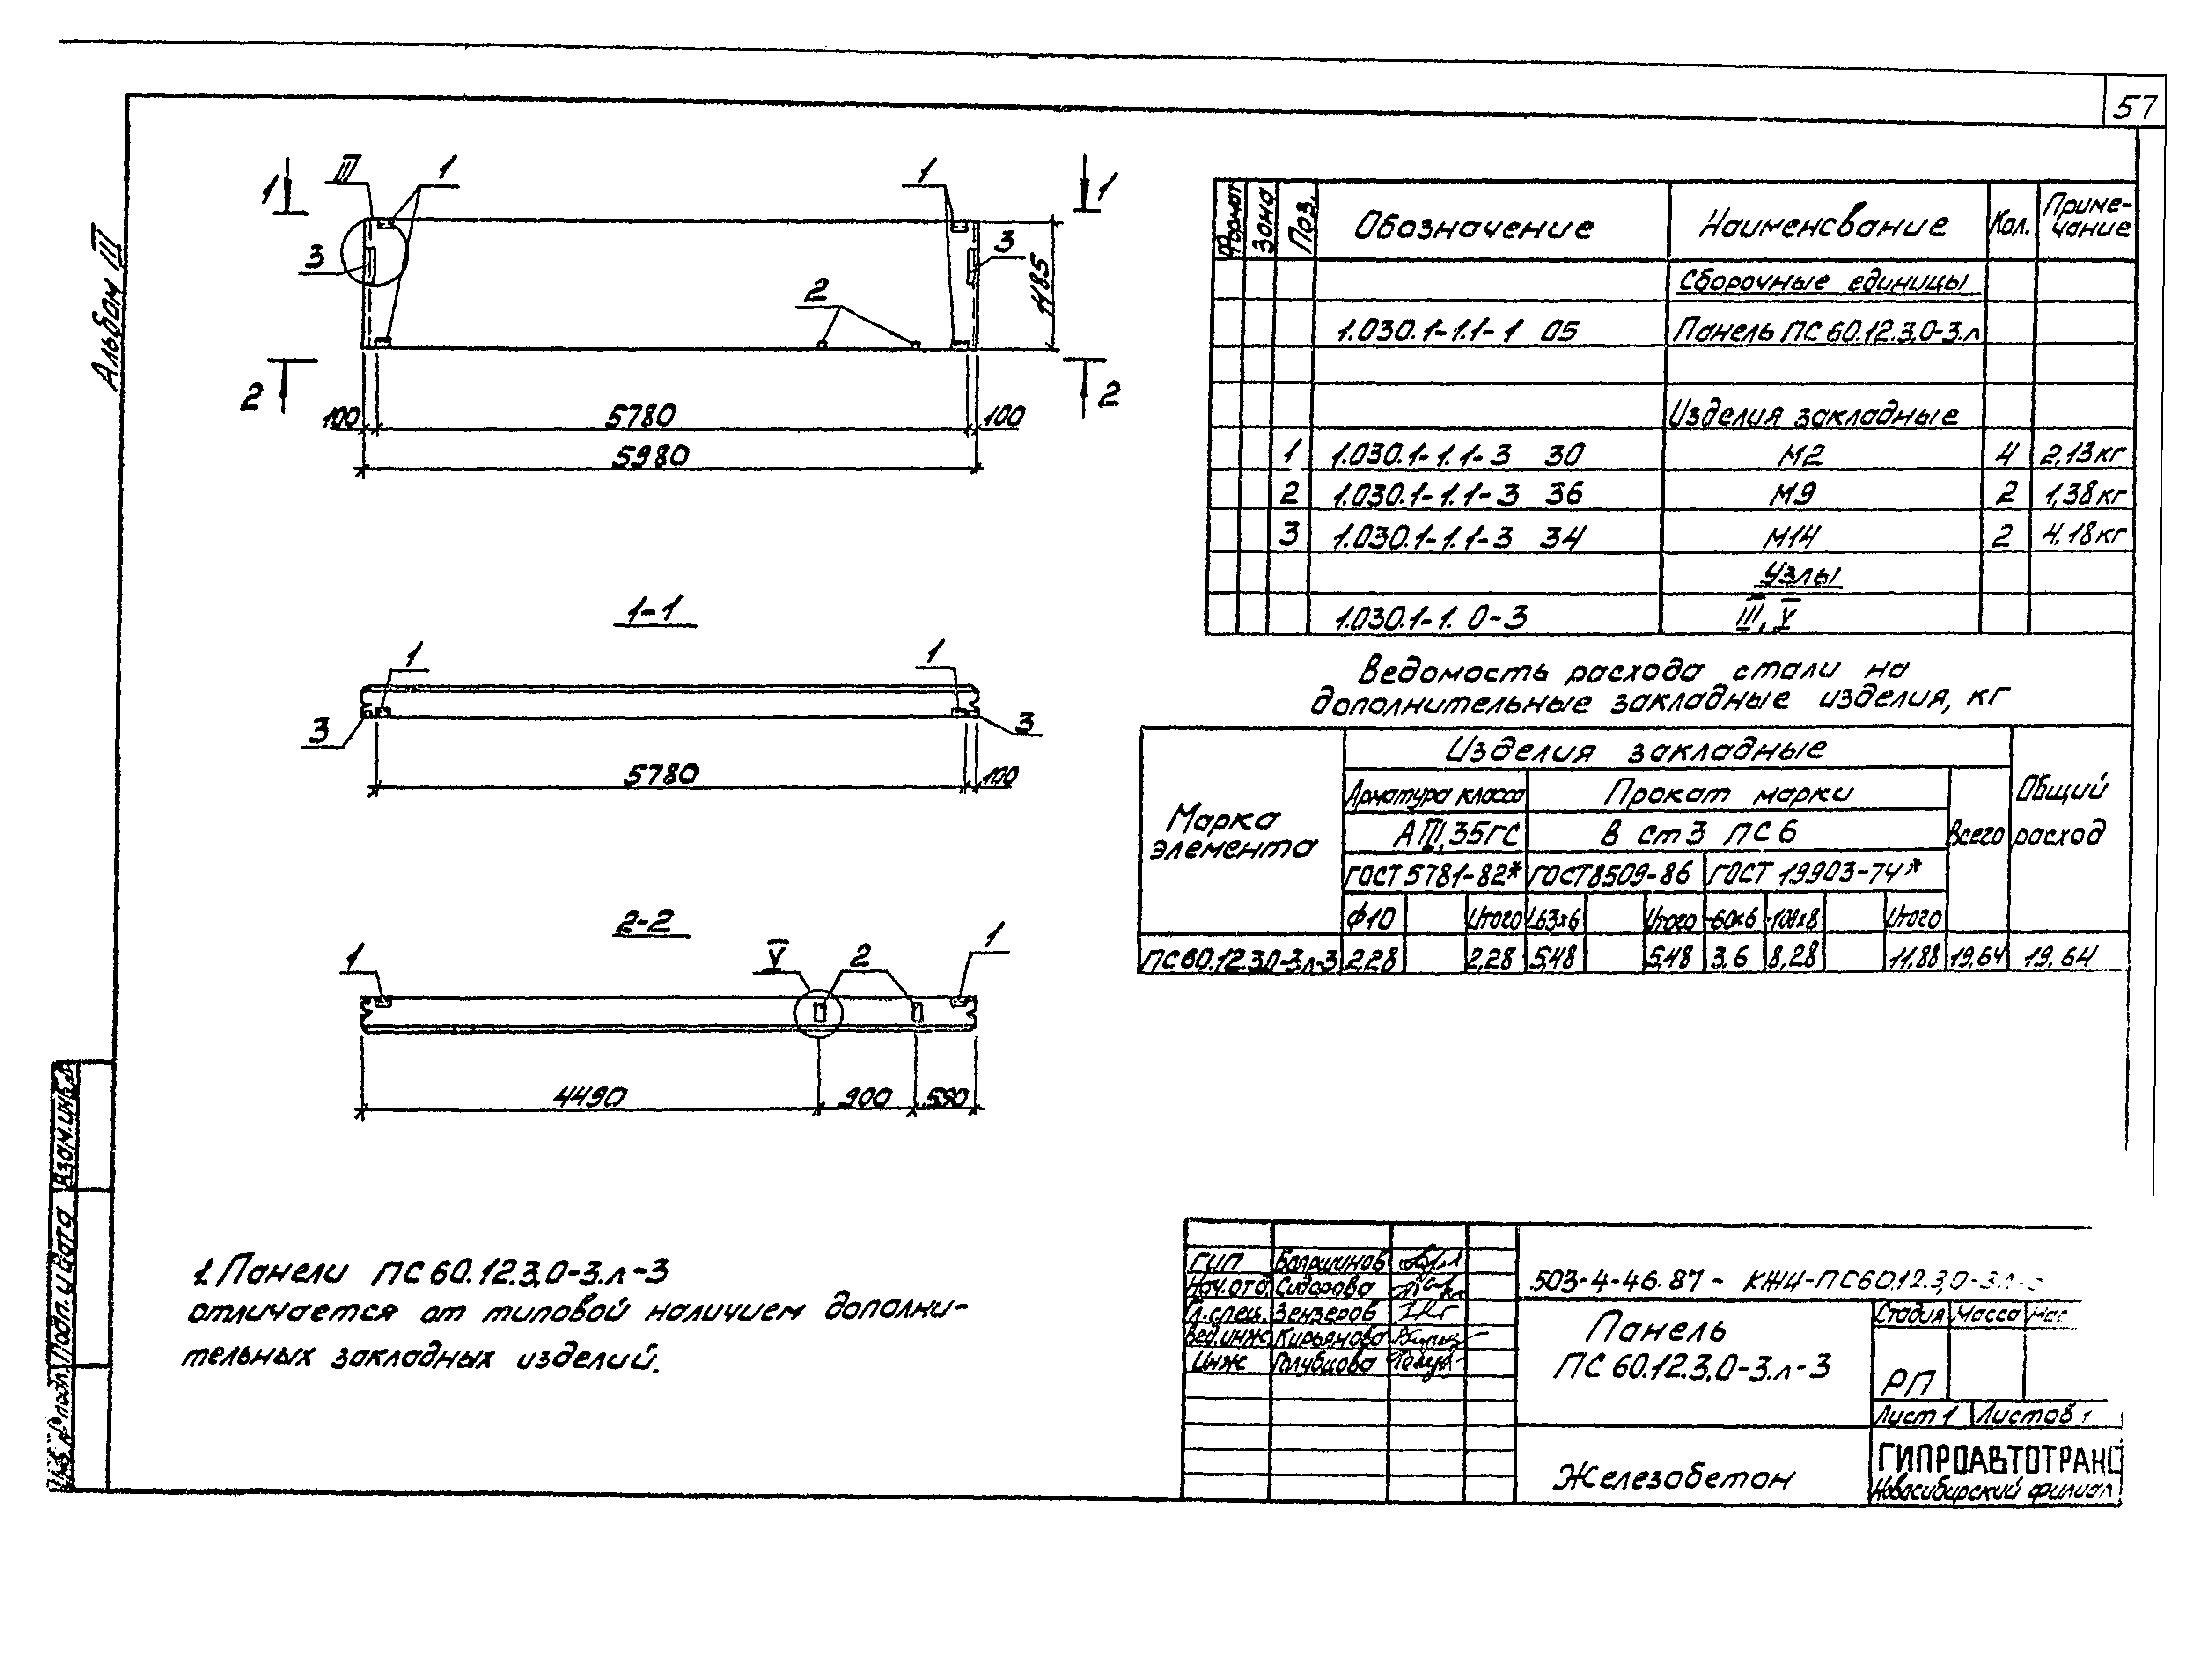 57
Альбом III
1 III 1 1 1
3 3
2
1185
2 2
100 5780 100
5980
1-1
1 1
3 3
5780 100
2-2
1 V 2 1
4490 900 590
1. Панели ПС 60.12.3,0-3.л-3
отличается от типовой наличием дополни-
тельных закладных изделий.
Формат Зона Поз. Обозначение Наименсвание Кол. Приме-
чание
Сборочные единицы
1.030.1-1.1-1 05 Панель ПС 60.12.3,0-3.л
Изделия закладные
1 1.030.1-1.1-3 30 М2 4 2,13кг
2 1.030.1-1.1-3 36 М9 2 1,38кг
3 1.030.1-1.1-3 34 М14 2 4,18кг
Узлы
1.030.1-1. 0-3 III, V
Ведомость расхода стали на
дополнительные закладные изделия, кг
Марка
элемента
Изделия закладные
Общий
расход
Арматура класса Прокат марки
АIII, 35ГС В ст3 ПС6 Всего
ГОСТ 5781-82* ГОСТ 8509-86 ГОСТ 19903-74*
ф10 Итого L63х6 Итого -60х6 -100х8 Итого
ПС60.12.3,0-3л-3 2,28 2,28 5,48 5,48 3,6 8,28 11,88 19,64 19,64
Взам.инв.№
Подп. и дата
Инв.№ подл.
ГИП Бояршинов
Нач.отд. Сидорова
Гл.спец. Зензеров
Вед.инж Кирьянова
Инж Голубцова
503-4-46.87- КЖИ-ПС60.12.3,0-3.л-3
Панель
ПС 60.12.3,0-3.л-3
Стадия Масса Мас
РП
Лист 1 Листов 1
Железобетон
ГИПРОАВТОТРАНС
Новосибирский филиал